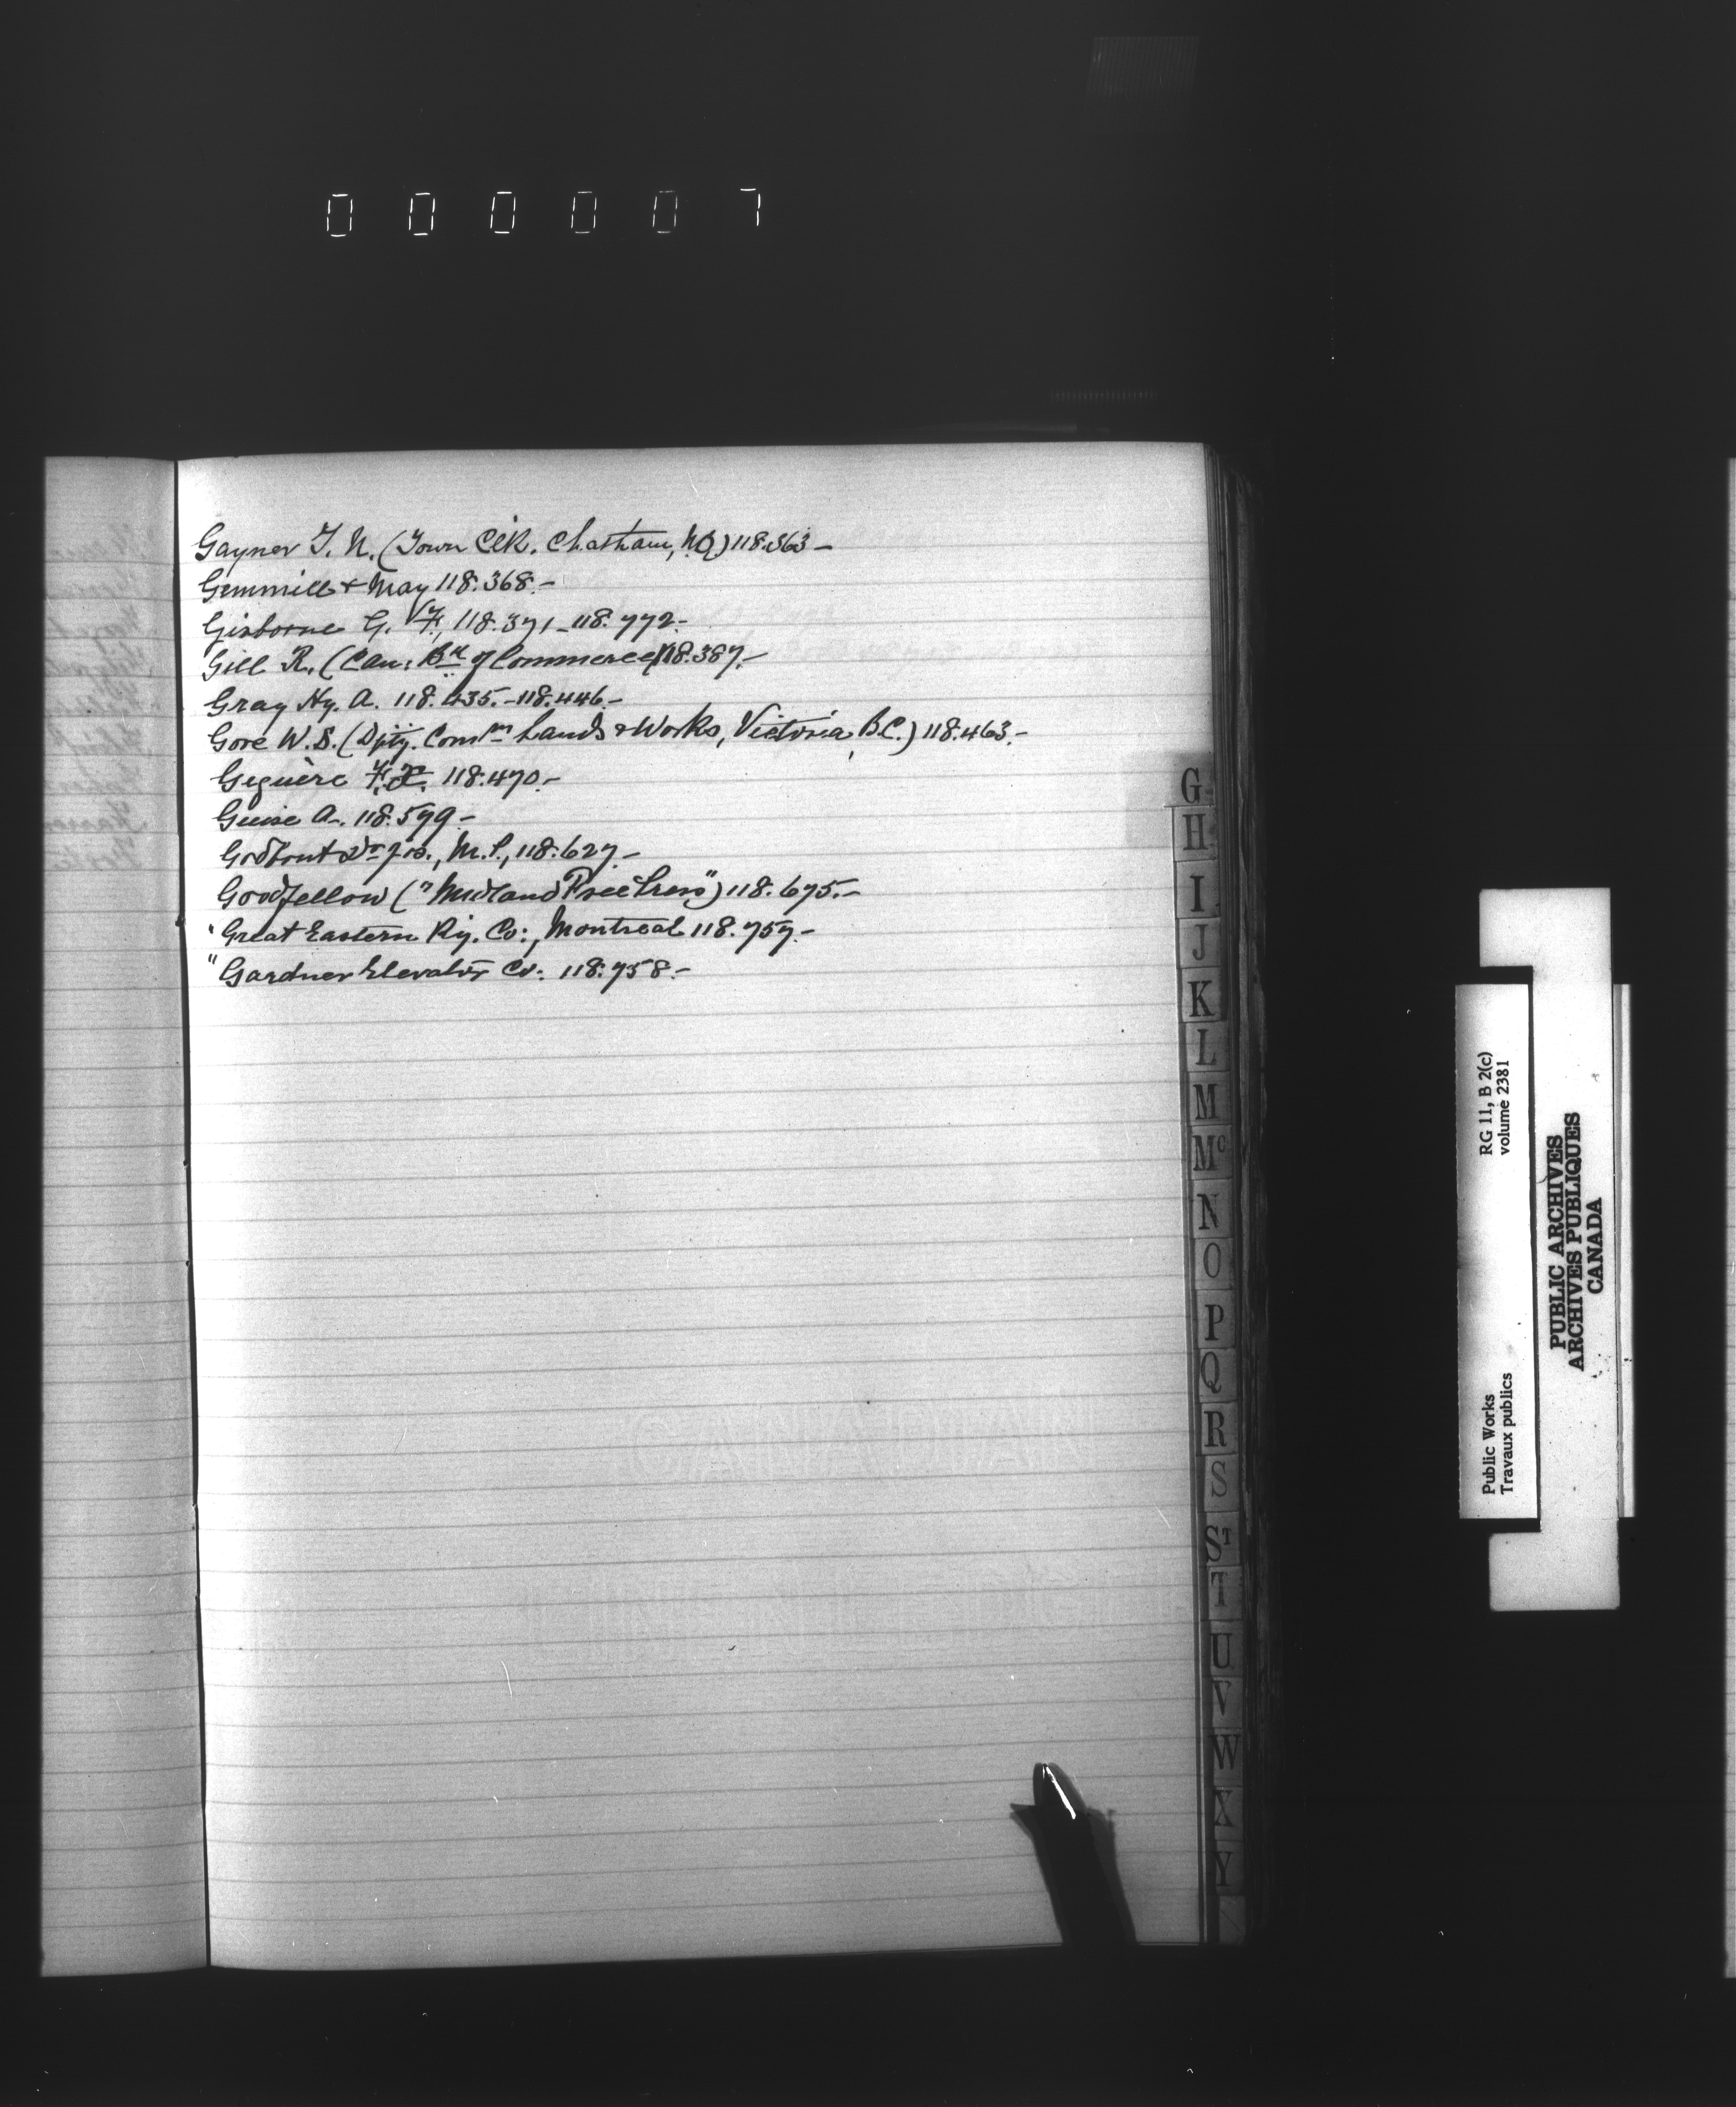 0 0 0 0 0 7
Gayner T. N. (Town Clk. Chatham, N.B.) 118.363–
Gemmill + May 118.368.–
Gisborne G. F., 118.371–118.772.–
Gill R. (Can. Bk of Commerce) 118.387.–
Gray Hy. A. 118.435.–118.446.–
Gore W. S. (Dpty. Comsr Lands & Works, Victoria, B.C.) 118.463.–
118.470.–
Guise A. 118.579.–
Godbout Dr Jos., M.P., 118.627.–
Goodfellow ("Midland Free Press") 118.675.–
" Great Eastern Ry. Co:, Montreal 118.757.–
" Gardner Elevator Co: 118.758.–
G
H
I
J
K
L
M
Mc
N
O
P
Q
R
S
ST
T
U
V
W
X
Y
RG 11, B 2(c)
volume 2381
Public Works
Travaux publics
PUBLIC ARCHIVES
ARCHIVES PUBLIQUES
CANADA